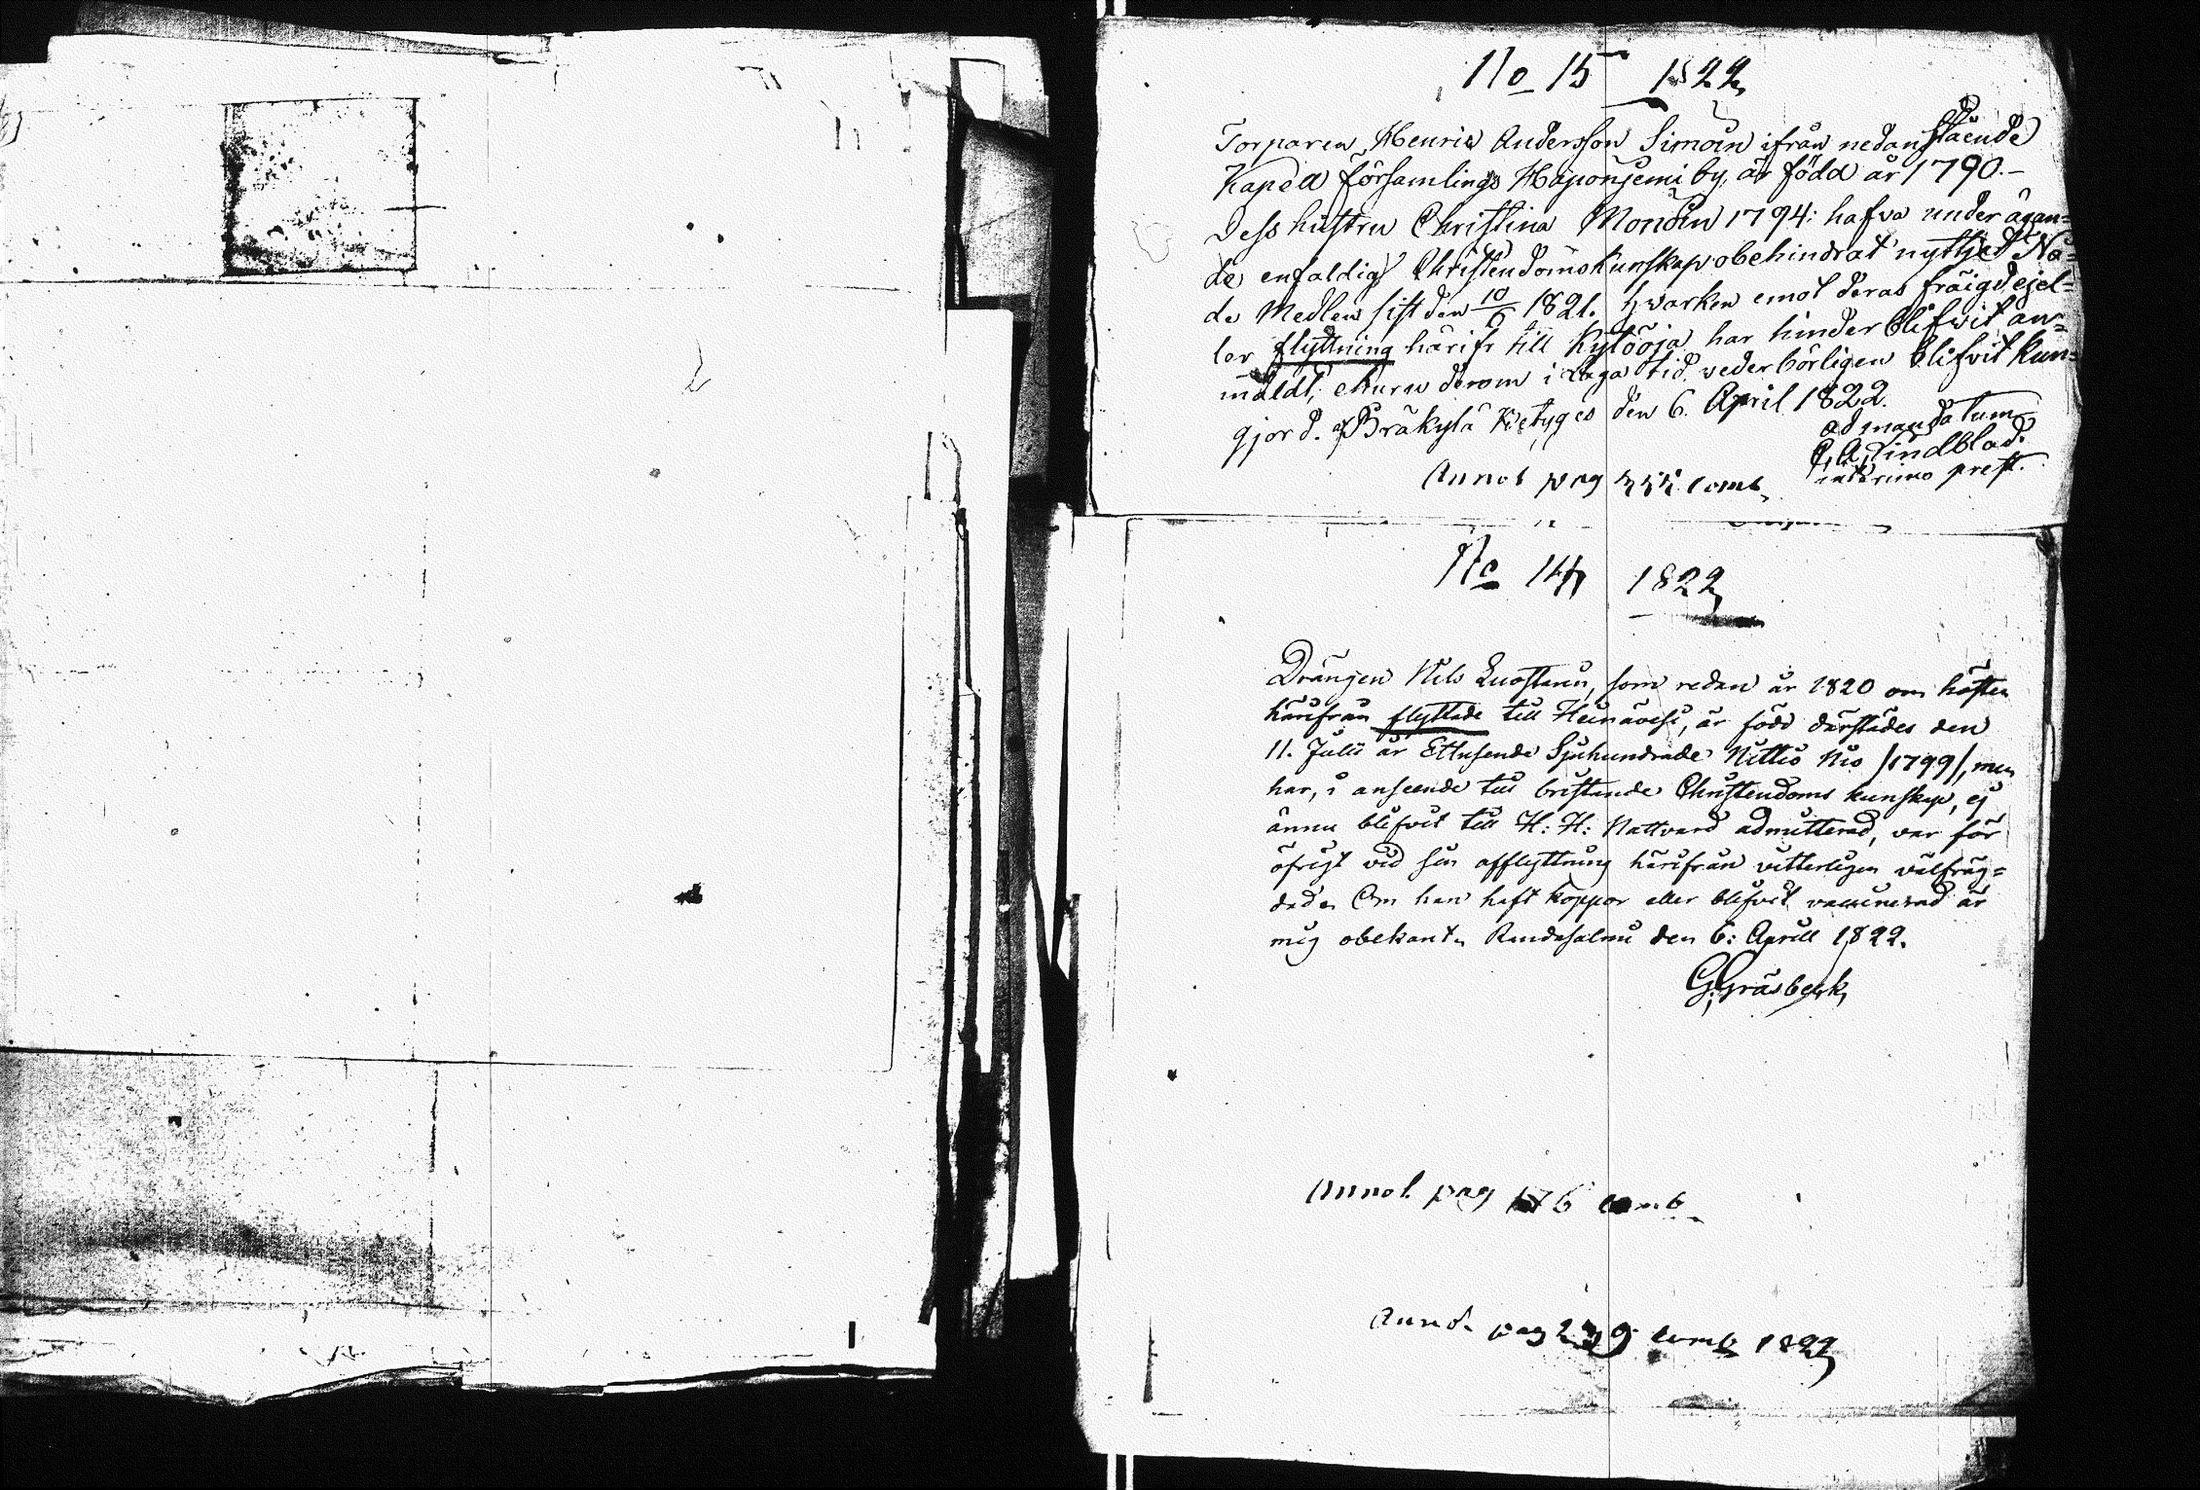 No 15 1822
Torparen Henric Andersson Simoin ifrån nedanstående
Kapell församlings Haponjemi by, är född år 1790.-
Dess hustru Christina Monoin 1794: hafva under ägan=
de enfaldig Christendomskunskap obehindrat nyttjed Nå=
de Medlen sist den 10/6 1821. Hwarken emot deras fräigd ejel=
ler flyttning härifr till Kylöoja har hinder blifwit an=
mäldt, ehuru derom i laga tid vederbörligen blifvit kun=
gjord. af Bräkylä betyges den 6. April 1822.
ad mandatum
C. A. Lindblad.
interims prest.
Annot pag comb
No 14 1822
Drängen Nils Luostain, som redan år 1820 om hösten
härifrån flyttade till Heinävesi, är född därstädes den
11. Julii år Ettusende Sjuhundrade Nittio Nio /1799/, men
har, i anseende till bristande Christendoms kunskap, ej
ännu blifvit till H: H: Nattvard admitterad, var för
öfrigt vid sin afflyttning härifrån vitterligen välfräg=
dad. Om han haft koppor eller blifvit vaccinerad är
mig obekant. Randasalmi den 6: Aprill 1822.
G. Gräsbeck
Annot pag 176 comb
Annot. pag 239 comb 1822